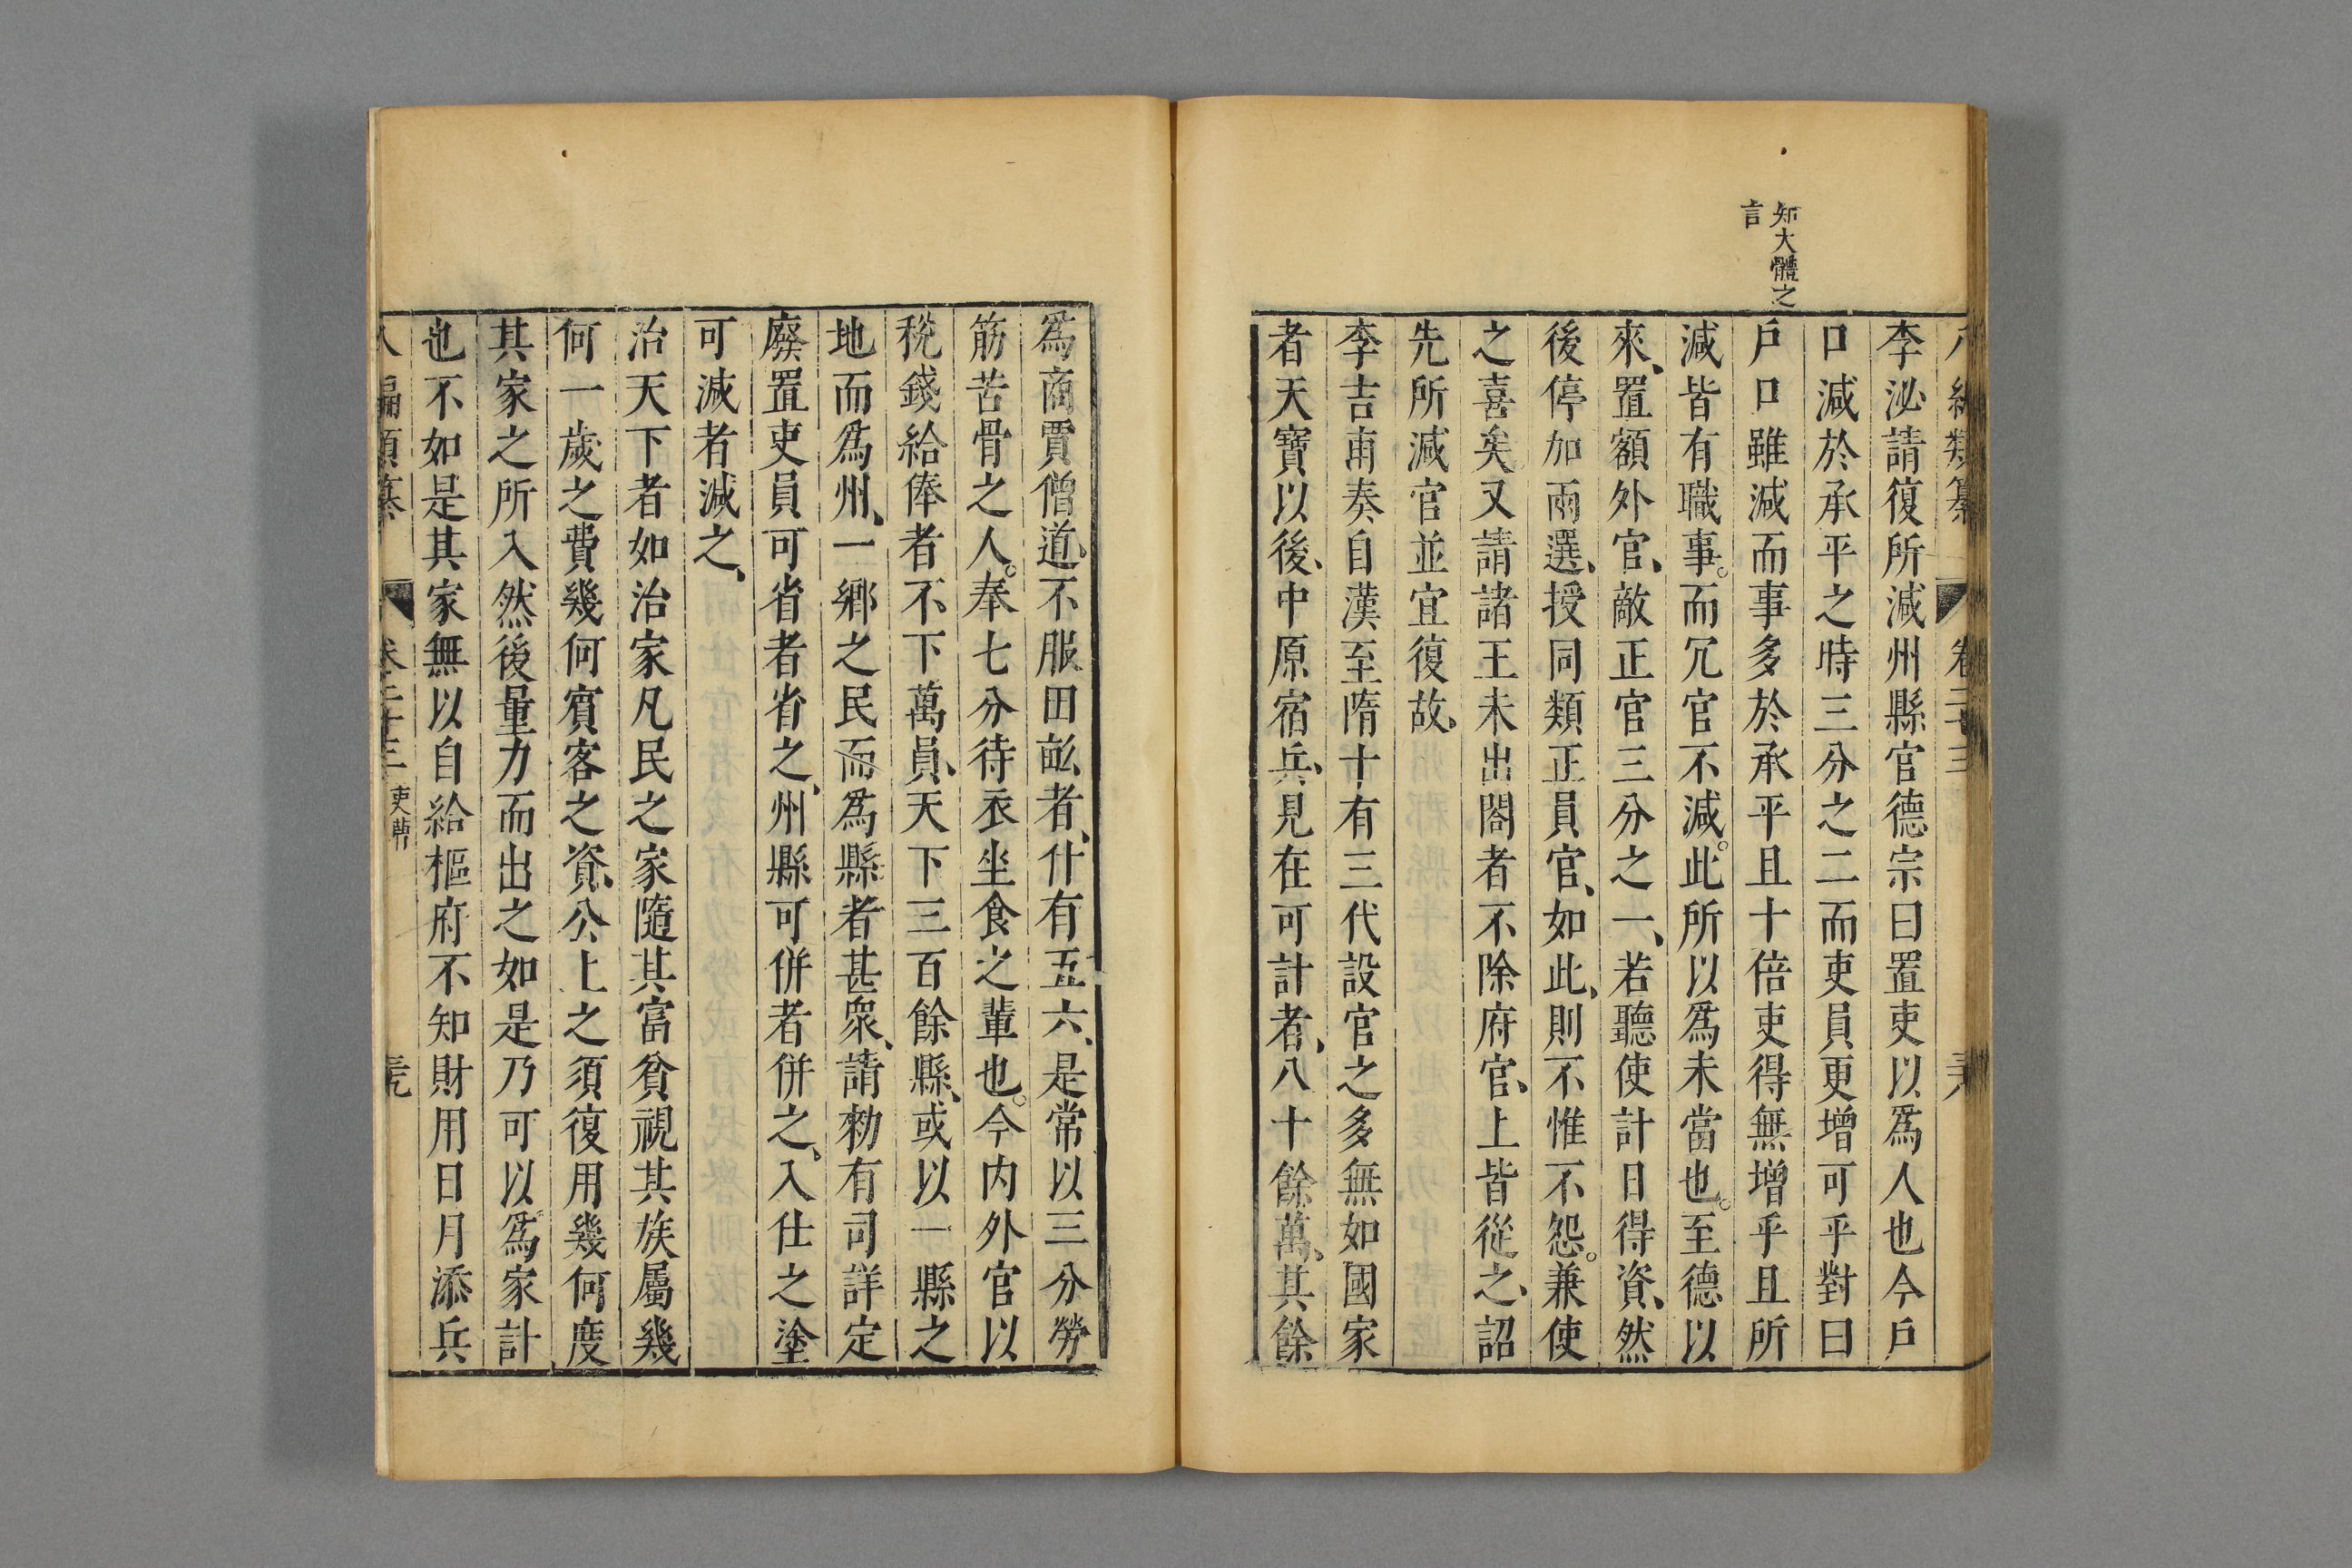 知大體之
言
李泌請復所減州縣官德宗曰置吏以爲人也今戶
口減於承平之時三分之二而吏員更增可乎對曰
戶口雖減而事多於承平且十倍吏得無增乎且所
減皆有職事。而冗官不減。此所以爲未當也。至德以
來、置額外官、敵正官三分之一、若聽使計日得資、然
後停加兩選、授同類正員官、如此、則不惟不怨。兼使
之喜矣又請諸王未出閤者不除府官、上皆從之、詔
先所減官並宜復故、
李吉甫奏自漢至隋十有三代設官之多無如國家
者天寶以後、中原宿兵、見在可計者、八十餘萬、其餘
爲商賈僧道、不服田畝者、什有五六、是常以三分勞
筋苦骨之人。奉七分待衣坐食之輩也。今內外官以
稅錢給俸者不下萬員、天下三百餘縣、或以一縣之
地而爲州、一鄉之民而爲縣者甚衆、請勑有司詳定
廢置吏員可省者省之、州縣可併者併之、入仕之塗
可減者減之、
治天下者如治家凡民之家隨其富貧視其族屬幾
何一歲之費幾何賓客之資、公上之須復用幾何度
其家之所入然後量力而出之如是乃可以爲家計
也不如是其家無以自給樞府不知財用日月添兵